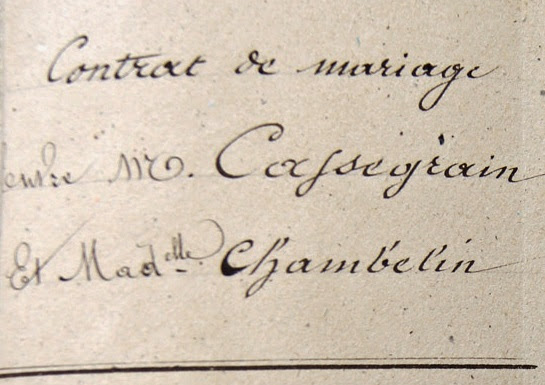 Contrat de mariage
entre M. Cassegrain
Et Madelle Chambelin